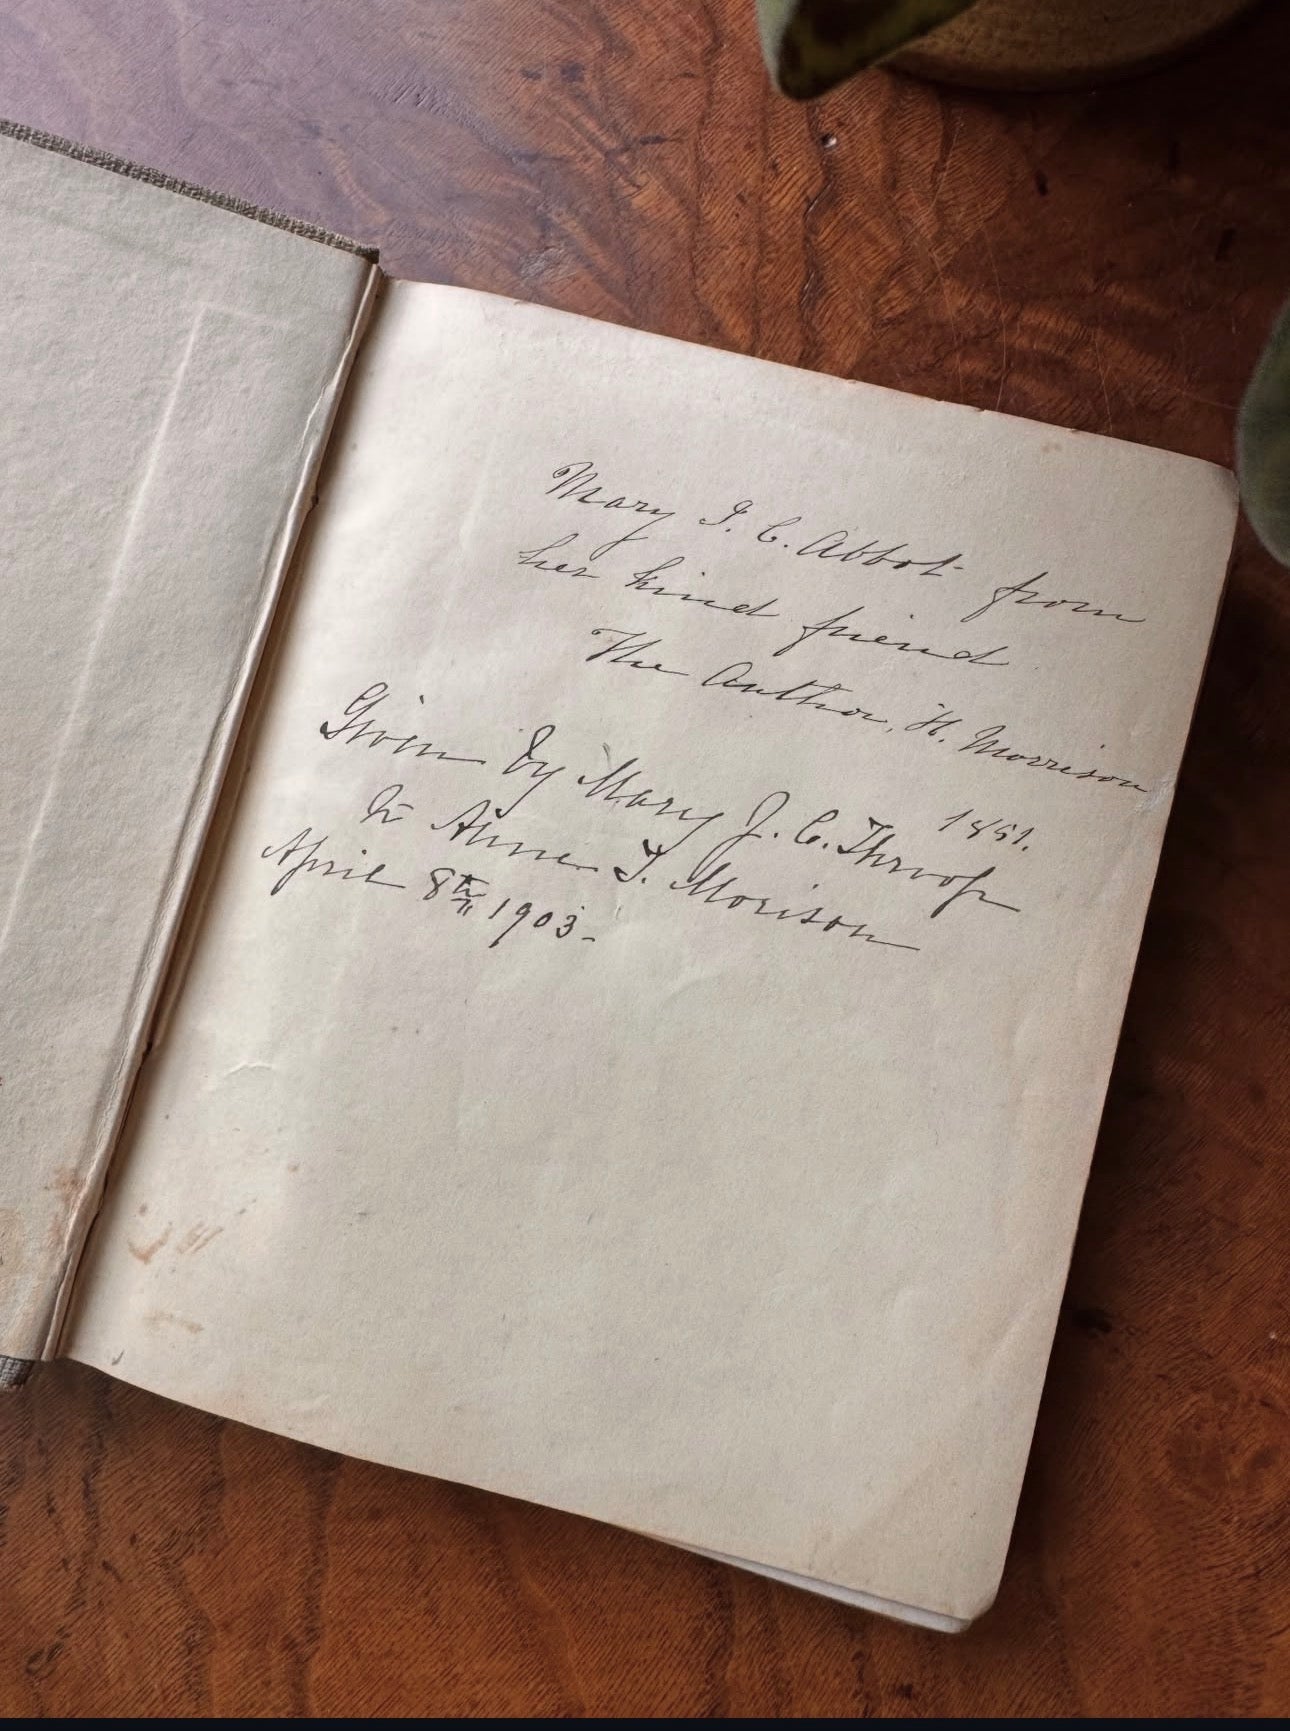 Mary J. C. Abbot from
her kind friend
The Author, H. Morrison
1851.
Given by Mary J. C. Throop
to Anne T. Morison
April 8th 1903-